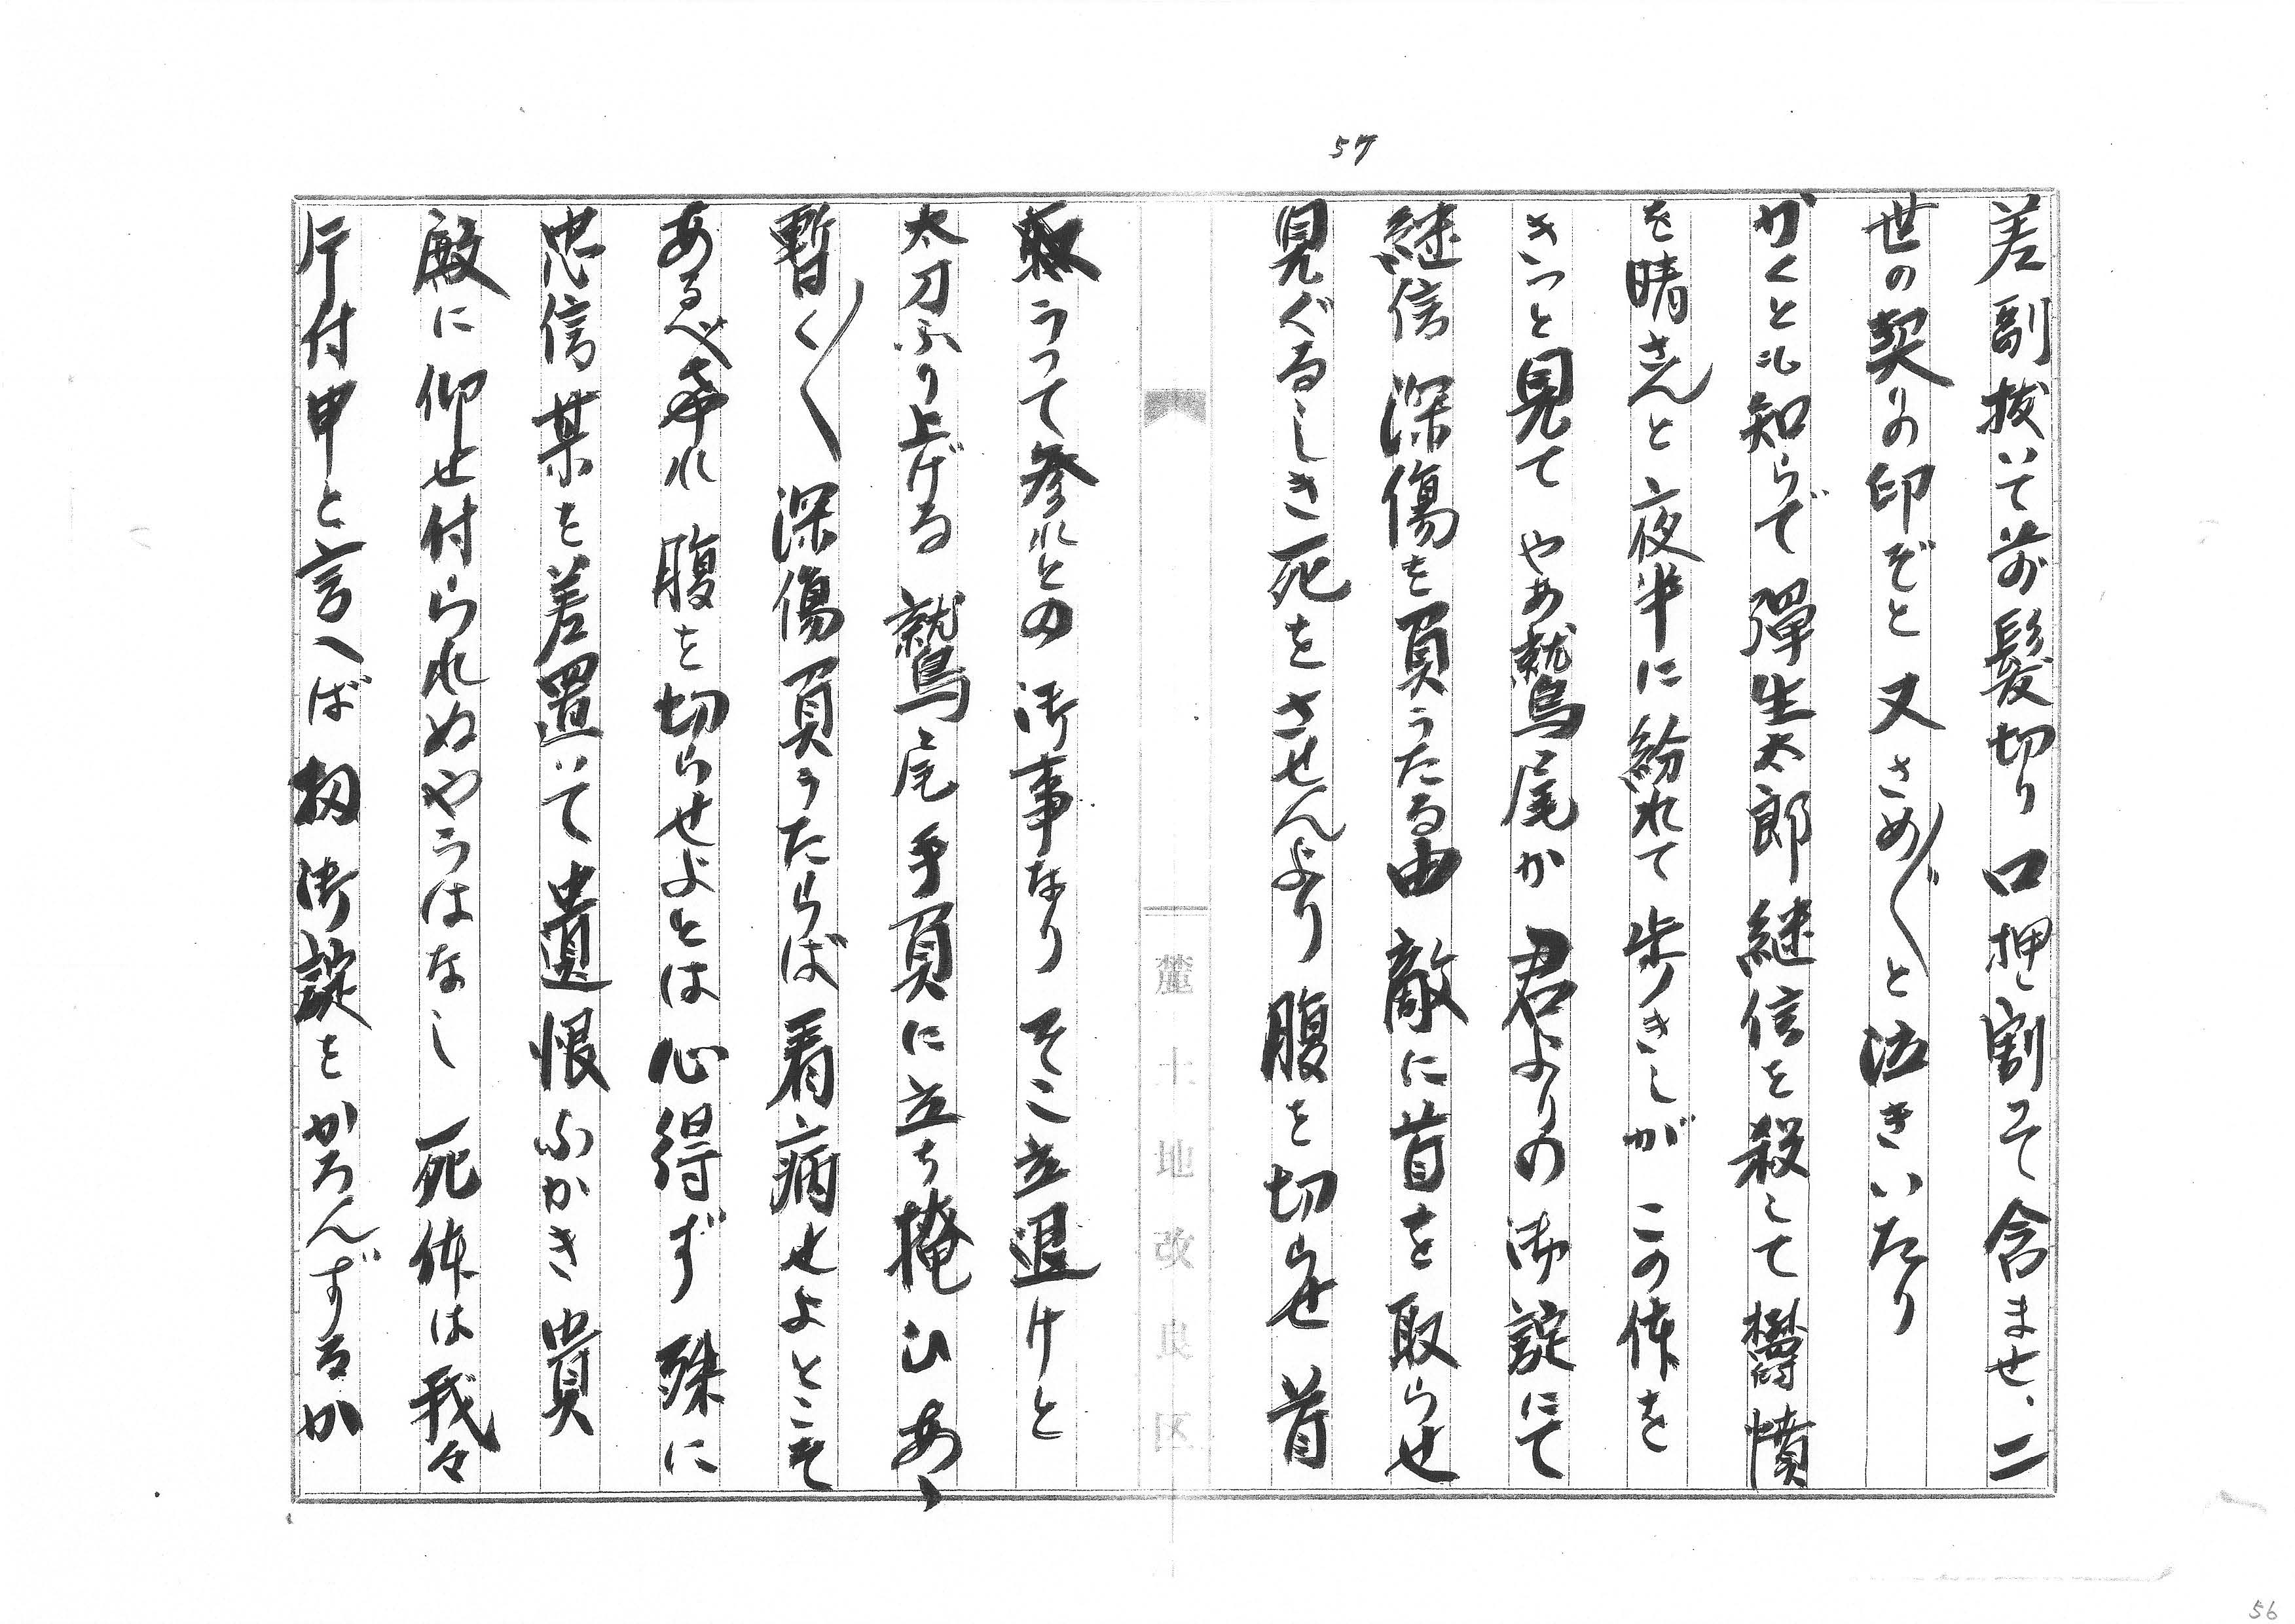 57
差副抜いて前髪切り口押し割つて含ませ、二
世の契りの印ぞと又さめ〴〵と泣きいたり
かくとも知らで彈生太郎継信を殺して欝憤
を晴さんと夜半に紛れて歩きしがこの体を
きつと見てやあ鷲尾か君よりの御諚にて
継信深傷を負うたる由敵に首を取らせ
見ぐるしき死をさせんより腹を切らせ首
うつて参れとの御事なりそこ立退けと
太刀ふり上げる鷲尾手負に立ち掩ひあゝ
暫く〳〵深傷負うたらば看病せよとこそ
あるべきれ腹を切らせよとは心得ず殊に
忠信某を差置いて遺恨ふかき貴
殿に仰せ付られぬやうはなし死体は我々
片付申と言へば扨御諚をかろんずるか
麓土地改良区
56